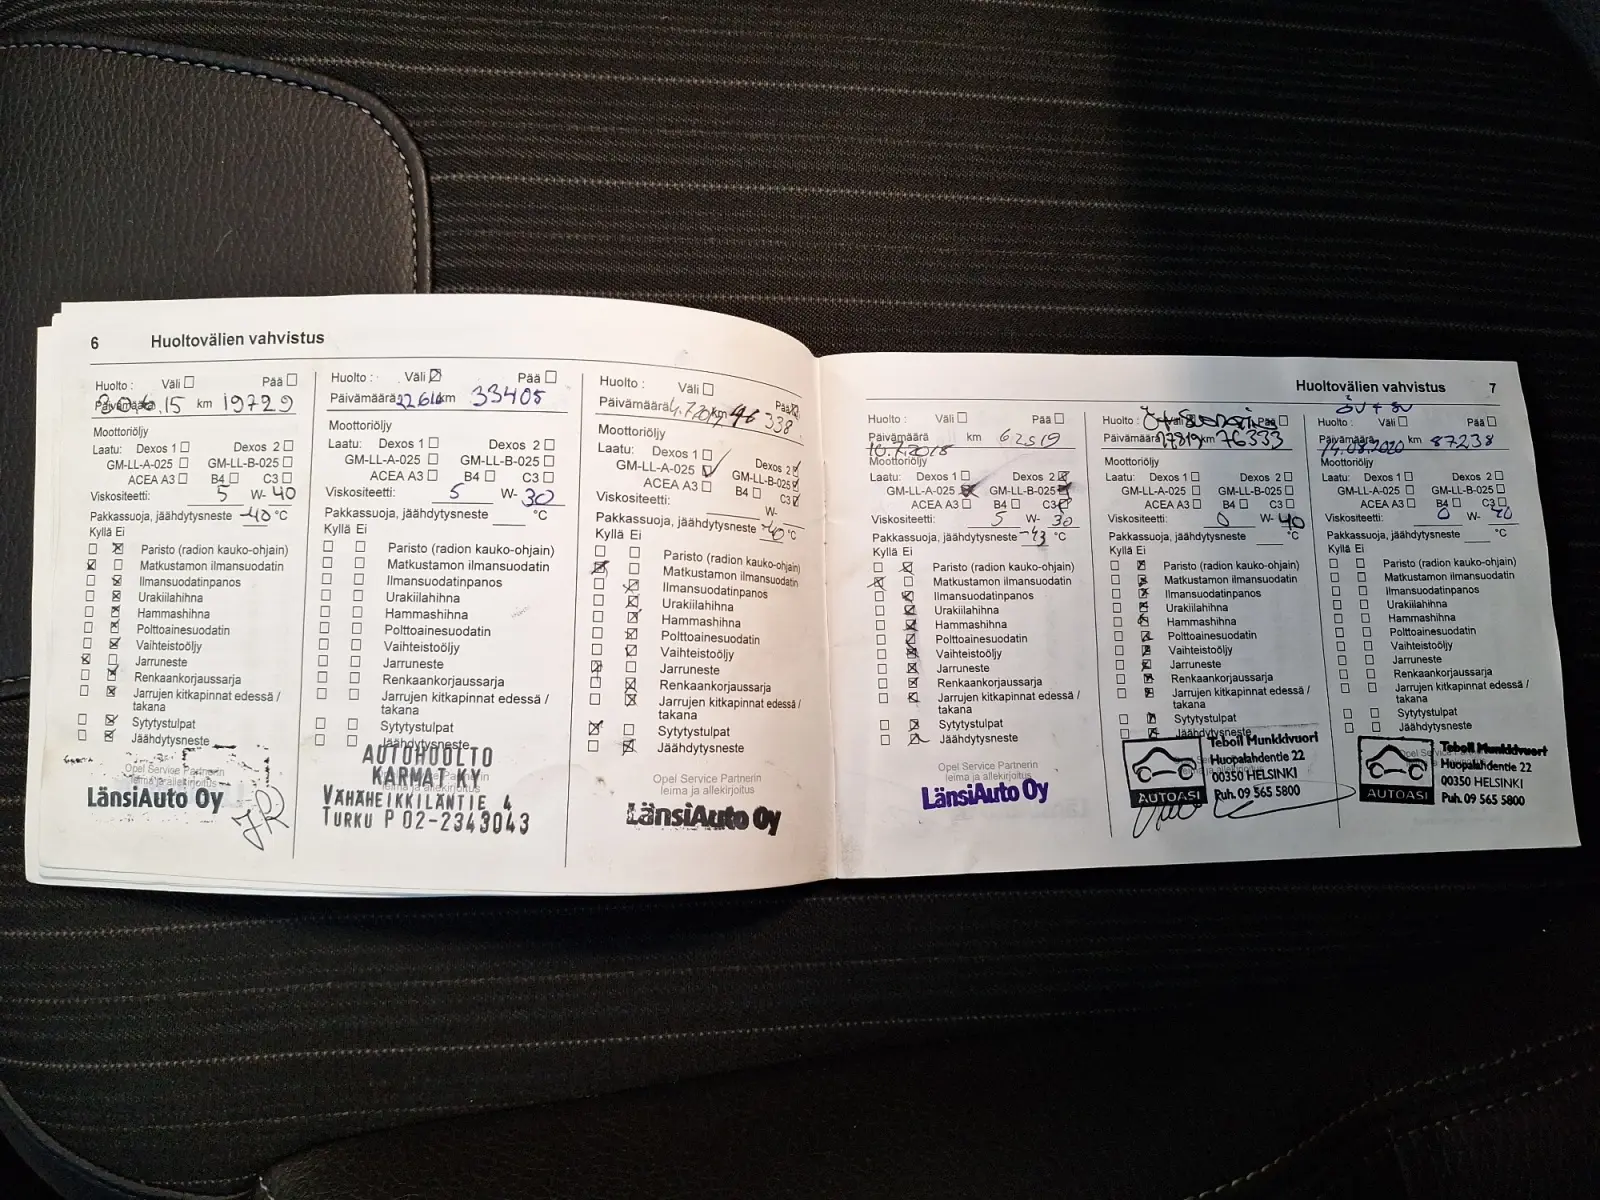 6 Huoltovälien vahvistus
Huolto : Väli Pää
Päivämäärä .15 km 19729
Moottoriöljy
Laatu: Dexos 1 Dexos 2
GM-LL-A-025 GM-LL-B-025
ACEA A3 B4 C3
Viskositeetti: 5 W- 40
Pakkassuoja, jäähdytysneste -40 °C
Kyllä Ei
Paristo (radion kauko-ohjain)
Matkustamon ilmansuodatin
Ilmansuodatinpanos
Urakiilahihna
Hammashihna
Polttoainesuodatin
Vaihteistoöljy
Jarruneste
Renkaankorjaussarja
Jarrujen kitkapinnat edessä /
takana
Sytytystulpat
Jäähdytysneste
Opel Service Partnerin
leima ja allekirjoitus
LänsiAuto Oy
Huolto : Väli Pää
Päivämäärä km 33405
Moottoriöljy
Laatu: Dexos 1 Dexos 2
GM-LL-A-025 GM-LL-B-025
ACEA A3 B4 C3
Viskositeetti: 5 W- 30
Pakkassuoja, jäähdytysneste °C
Kyllä Ei
Paristo (radion kauko-ohjain)
Matkustamon ilmansuodatin
Ilmansuodatinpanos
Urakiilahihna
Hammashihna
Polttoainesuodatin
Vaihteistoöljy
Jarruneste
Renkaankorjaussarja
Jarrujen kitkapinnat edessä /
takana
Sytytystulpat
Jäähdytysneste
AUTOHUOLTO
KARMA KY
VÄHÄHEIKKILÄNTIE 4
TURKU P 02-2343043
Huolto : Väli Pää
Päivämäärä 4.7.2017 km 46 338
Moottoriöljy
Laatu: Dexos 1 Dexos 2
GM-LL-A-025 GM-LL-B-025
ACEA A3 B4 C3
Viskositeetti: W-
Pakkassuoja, jäähdytysneste -40 °C
Kyllä Ei
Paristo (radion kauko-ohjain)
Matkustamon ilmansuodatin
Ilmansuodatinpanos
Urakiilahihna
Hammashihna
Polttoainesuodatin
Vaihteistoöljy
Jarruneste
Renkaankorjaussarja
Jarrujen kitkapinnat edessä /
takana
Sytytystulpat
Jäähdytysneste
Opel Service Partnerin
leima ja allekirjoitus
LänsiAuto Oy
Huoltovälien vahvistus 7
Huolto : Väli Pää
Päivämäärä km 62519
10.7.2018
Moottoriöljy
Laatu: Dexos 1 Dexos 2
GM-LL-A-025 GM-LL-B-025
ACEA A3 B4 C3
Viskositeetti: 5 W- 30
Pakkassuoja, jäähdytysneste -43 °C
Kyllä Ei
Paristo (radion kauko-ohjain)
Matkustamon ilmansuodatin
Ilmansuodatinpanos
Urakiilahihna
Hammashihna
Polttoainesuodatin
Vaihteistoöljy
Jarruneste
Renkaankorjaussarja
Jarrujen kitkapinnat edessä /
takana
Sytytystulpat
Jäähdytysneste
Opel Service Partnerin
leima ja allekirjoitus
LänsiAuto Oy
Huolto : Väli Pää
Päivämäärä km 76333
Moottoriöljy
Laatu: Dexos 1 Dexos 2
GM-LL-A-025 GM-LL-B-025
ACEA A3 B4 C3
Viskositeetti: 0 W- 40
Pakkassuoja, jäähdytysneste °C
Kyllä Ei
Paristo (radion kauko-ohjain)
Matkustamon ilmansuodatin
Ilmansuodatinpanos
Urakiilahihna
Hammashihna
Polttoainesuodatin
Vaihteistoöljy
Jarruneste
Renkaankorjaussarja
Jarrujen kitkapinnat edessä /
takana
Sytytystulpat
Jäähdytysneste
Teboil Munkkivuori
Huopalahdentie 22
00350 HELSINKI
Puh. 09 565 5800
AUTOASI
ÖV + SV
Huolto : Väli Pää
Päivämäärä km 87238
14.08.2020
Moottoriöljy
Laatu: Dexos 1 Dexos 2
GM-LL-A-025 GM-LL-B-025
ACEA A3 B4 C3
Viskositeetti: 0 W-
Pakkassuoja, jäähdytysneste °C
Kyllä Ei
Paristo (radion kauko-ohjain)
Matkustamon ilmansuodatin
Ilmansuodatinpanos
Urakiilahihna
Hammashihna
Polttoainesuodatin
Vaihteistoöljy
Jarruneste
Renkaankorjaussarja
Jarrujen kitkapinnat edessä /
takana
Sytytystulpat
Jäähdytysneste
Teboil Munkkivuori
Huopalahdentie 22
00350 HELSINKI
Puh. 09 565 5800
AUTOASI